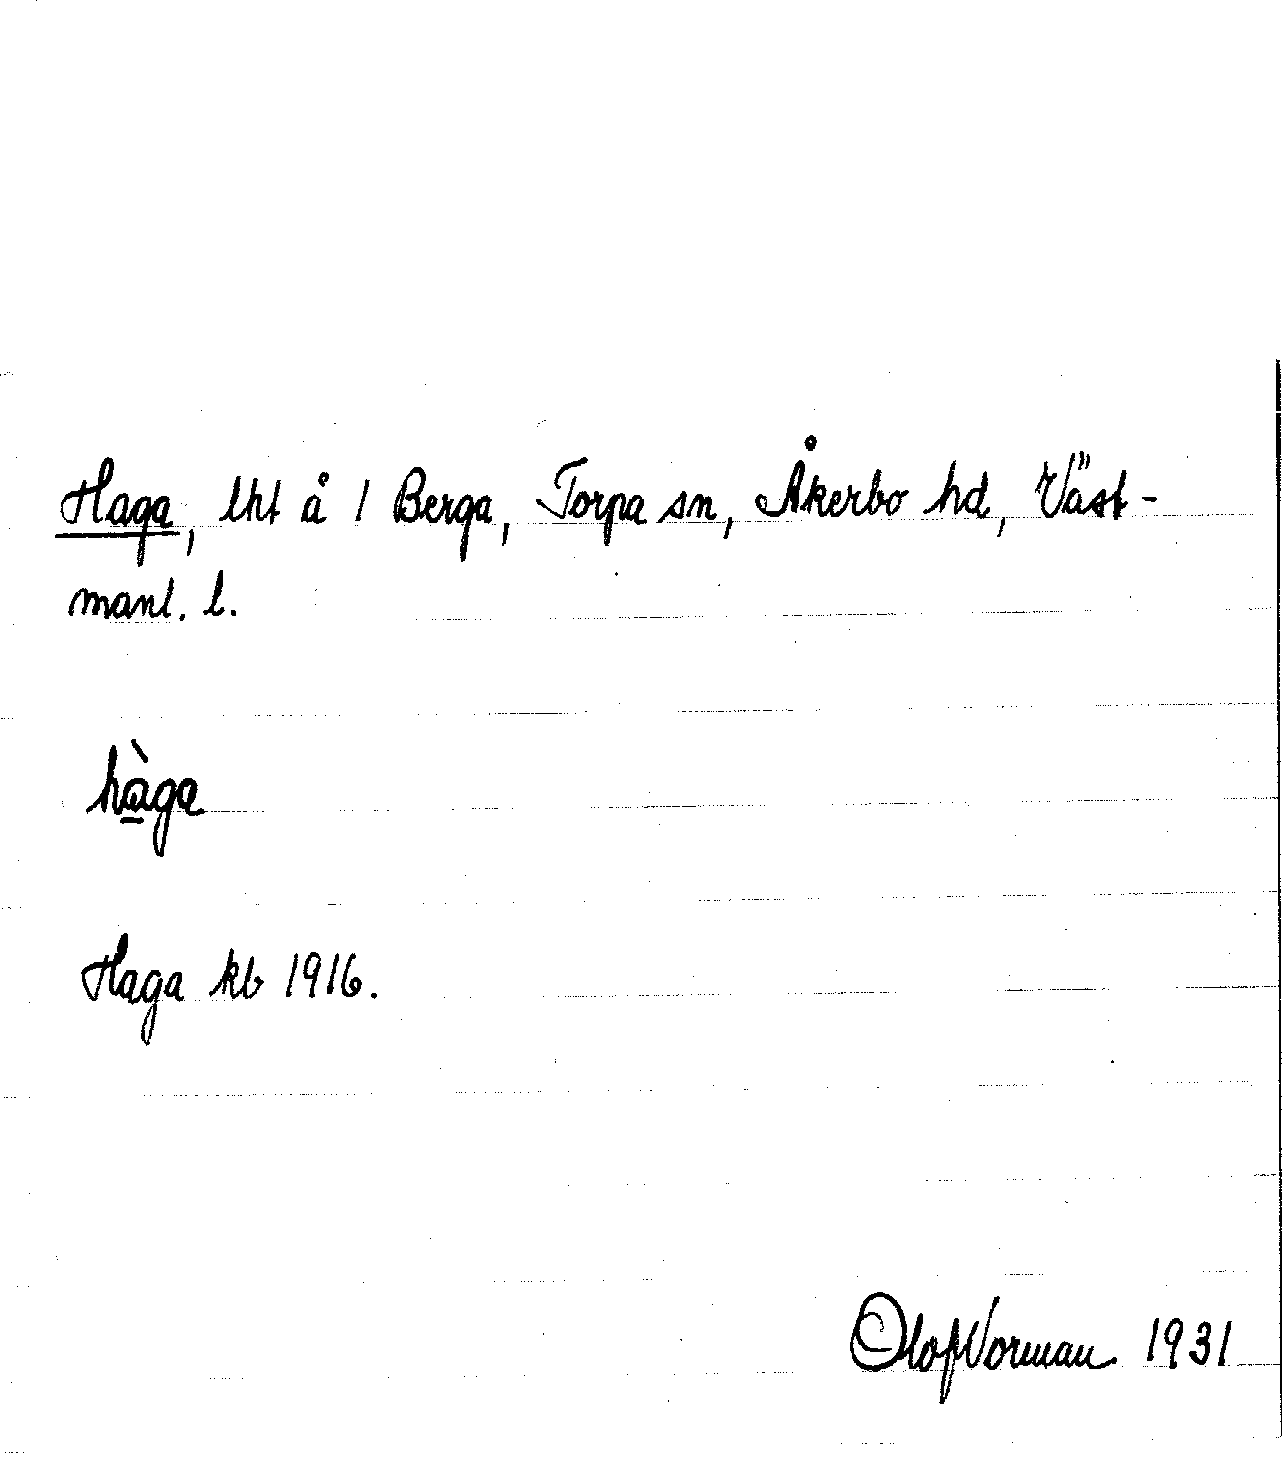 Haga, lht å 1 Berga, Torpa sn, Åkerbo hd, Väst-
manl. l.
hàga
Haga kb 1916.
Olof Norman 1931